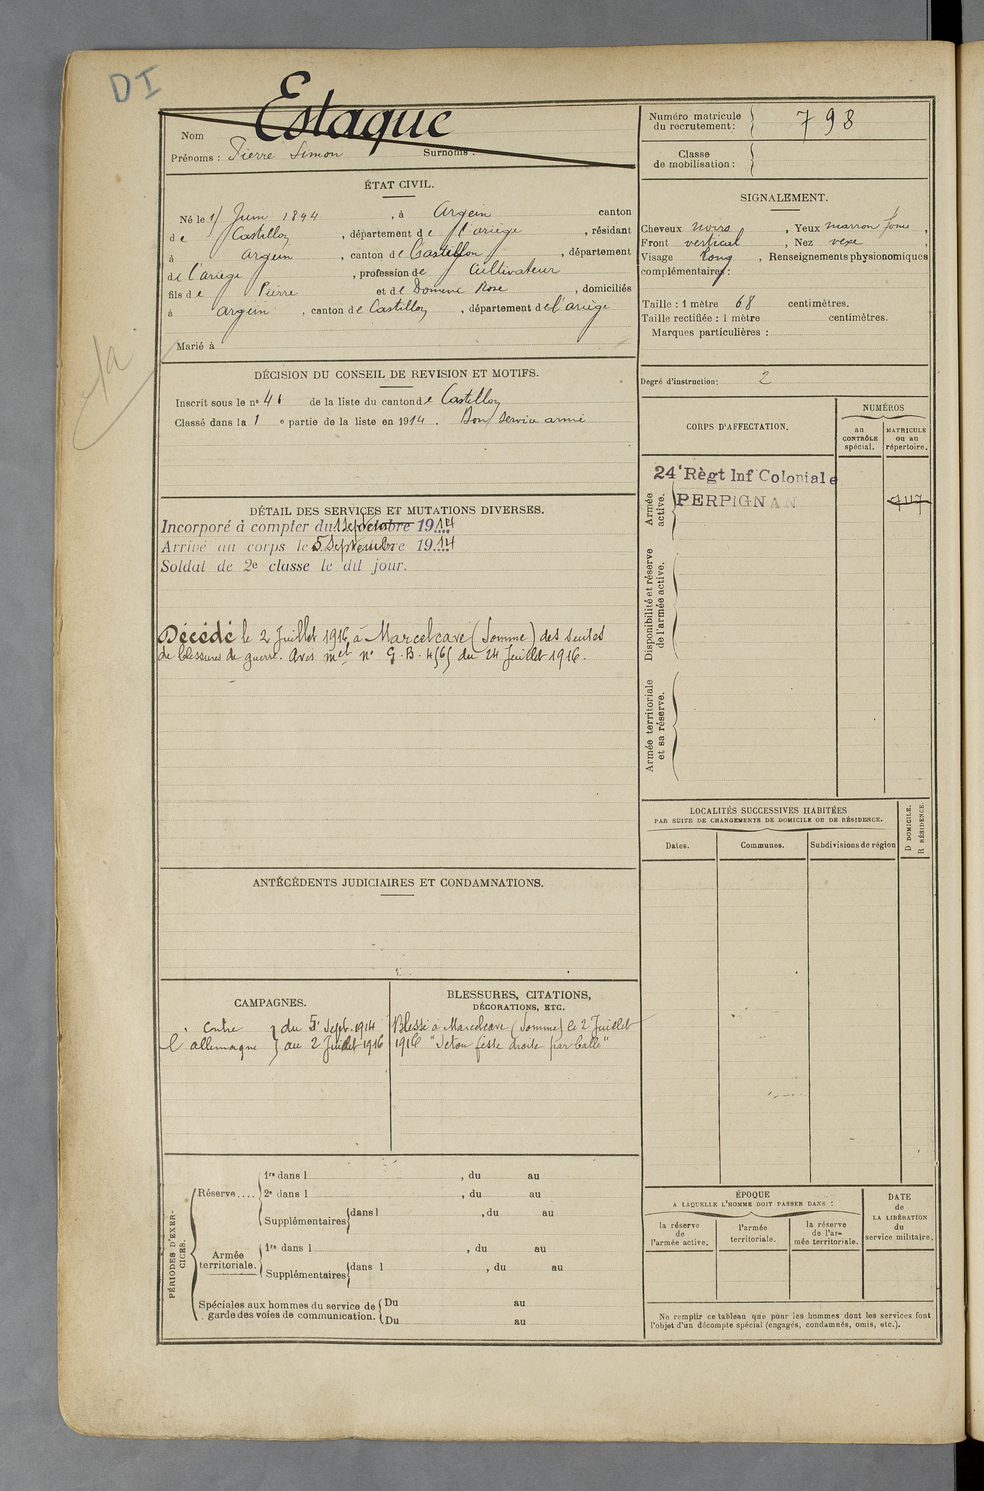 DI
Estaque
Nom
Prénoms : Pierre Simon Surnoms :
ÉTAT CIVIL.
Né le 1 Juin 1894, à Argein canton
de Castillon, département de l'ariège, résidant
à argein, canton de Castillon, département
de l'ariège, profession de Cultivateur
fils de Pierre et de Domenc Rose, domiciliés
à argein, canton de Castillon, département de l'ariège
Marié à
DÉCISION DU CONSEIL DE REVISION ET MOTIFS.
Inscrit sous le no 41 de la liste du canton de Castillon
Classé dans la 1 e partie de la liste en 1914. Bon Service armé
DÉTAIL DES SERVICES ET MUTATIONS DIVERSES.
Incorporé à compter du 1 Septembre 1914
Arrivé au corps le 5 Septembre 1914
Soldat de 2e classe le dit jour.
Décédé le 2 Juillet 1916 à Marcelcave (Somme) des suites
de blessures de guerre. Avis mel no G.B. du 24 Juillet 1916.
ANTÉCÉDENTS JUDICIAIRES ET CONDAMNATIONS.
CAMPAGNES.
Contre } du 5 Sept. 1914
l'allemagne } au 2 Juillet 1916
BLESSURES, CITATIONS,
DÉCORATIONS, ETC.
Blessé à Marcelcave (Somme) le 2 Juillet
1916 "Seton fesse droite par balle"
PÉRIODES D'EXER-
CICES.
Réserve....
1re dans l , du au
2e dans l , du au
Supplémentaires dans l , du au
Armée
territoriale.
1re dans l , du au
Supplémentaires dans l , du au
Spéciales aux hommes du service de
garde des voies de communication.
Du au
Du au
Numéro matricule
du recrutement : 798
Classe
de mobilisation :
SIGNALEMENT.
Cheveux noirs, Yeux marron foncé,
Front vertical, Nez vexe,
Visage long, Renseignements physionomiques
complémentaires :
Taille : 1 mètre 68 centimètres.
Taille rectifiée : 1 mètre centimètres.
Marques particulières :
Degré d'instruction : 2
CORPS D'AFFECTATION.
NUMÉROS
au
CONTRÔLE
spécial.
MATRICULE
ou au
répertoire.
Armée
active.
24e Règt Inf Coloniale
PERPIGNAN
Disponibilité et réserve
de l'armée active.
Armée territoriale
et sa réserve.
LOCALITÉS SUCCESSIVES HABITÉES
PAR SUITE DE CHANGEMENTS DE DOMICILE OU DE RÉSIDENCE.
Dates.
Communes.
Subdivisions de région
D DOMICILE.
R RÉSIDENCE.
ÉPOQUE
A LAQUELLE L'HOMME DOIT PASSER DANS :
la réserve
de
l'armée active.
l'armée
territoriale.
la réserve
de l'ar-
mée territoriale.
DATE
de
LA LIBÉRATION
du
service militaire.
Ne remplir ce tableau que pour les hommes dont les services font
l'objet d'un décompte spécial (engagés, condamnés, omis, etc.).